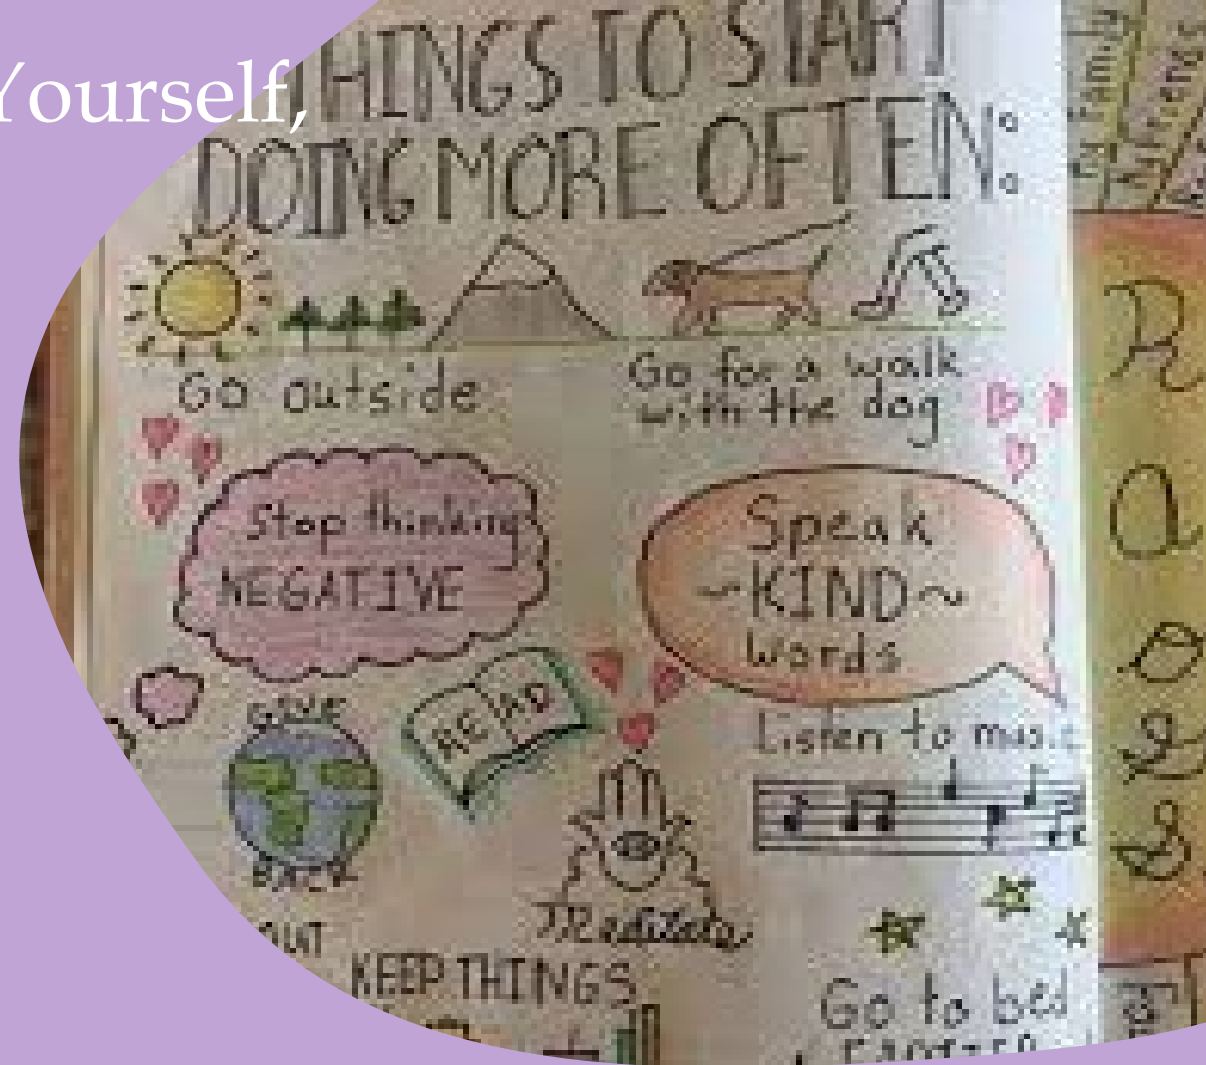 Yourself,
THINGS TO START
DOING MORE OFTEN:
Go outside
Go for a walk
with the dog
Stop thinking
NEGATIVE
Speak
~KIND~
words
GIVE
BACK
READ
Listen to music
Meditate
KEEP THINGS
Go to bed
EARLIER
family